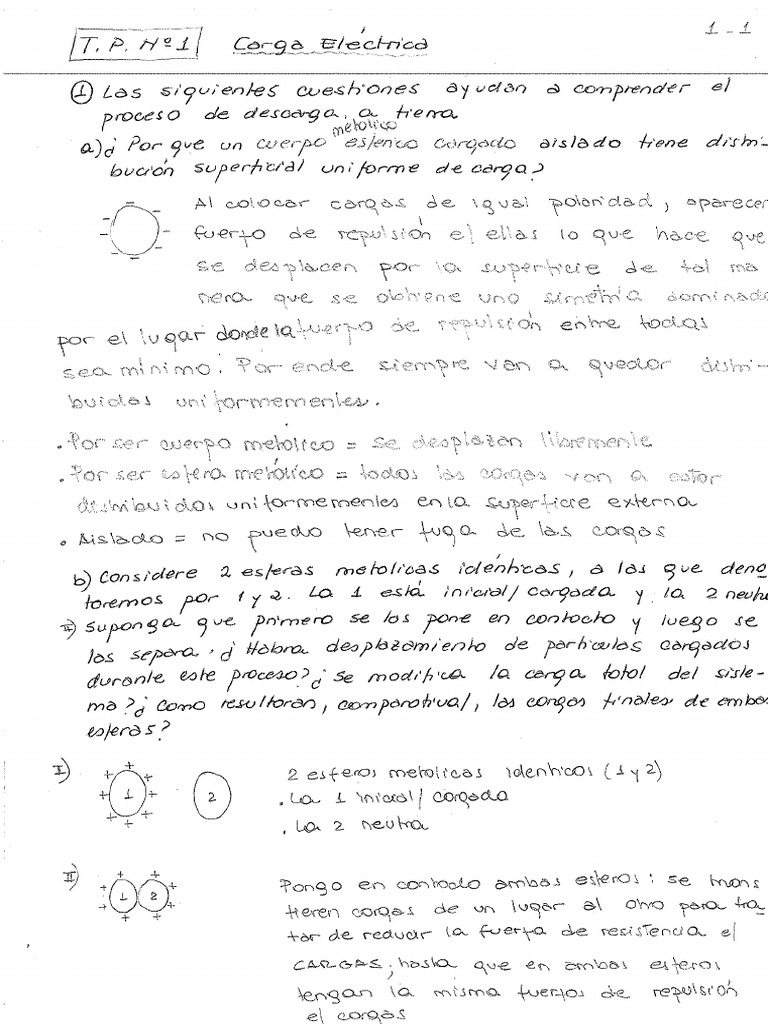 1 - 1
T. P. Nº 1 Carga Eléctrica
① Las siguientes cuestiones ayudan a comprender el
proceso de descarga a tierra
metálico
a) ¿Por que un cuerpo esferico cargado aislado tiene distri-
bución superficial uniforme de carga?
Al colocar cargas de igual polaridad, aparecen
fuerza de repulsión e/ ellas lo que hace que
se desplacen por la superficie de tal ma
nera que se obtiene una simetría dominada
por el lugar donde la fuerza de repulsión entre todas
sea mínimo. Por ende siempre van a quedar distri-
buidas uniformementes.
. Por ser cuerpo metálico = se desplazan libremente
. Por ser esfera metálico = todos las cargas van a estar
distribuidas uniformementes en la superficie externa
. Aislado = no puedo tener fuga de las cargas
b) Considere 2 esferas metalicas idénticas, a las que deno
toremos por 1 y 2. La 1 está inicial/ cargada y la 2 neutra
I) Suponga que primero se las pone en contacto y luego se
las separa. ¿Habra desplazamiento de particulas cargadas
durante este proceso? ¿Se modifica la carga total del siste-
ma? ¿como resultaran, comparativa/, las cargas finales de ambas
esferas?
I) + + + + + + + + 1 2
2 esferas metalicas identicas (1 y 2)
. La 1 inicial/ cargada
. La 2 neutra
II) + + + + + + + + 1 2
Pongo en contacto ambas esferas: se trans
fieren cargas de un lugar al otro para tra
tar de reducir la fuerza de resistencia e/
CARGAS; hasta que en ambas esferas
tengan la misma fuerzas de repulsión
e/ cargas